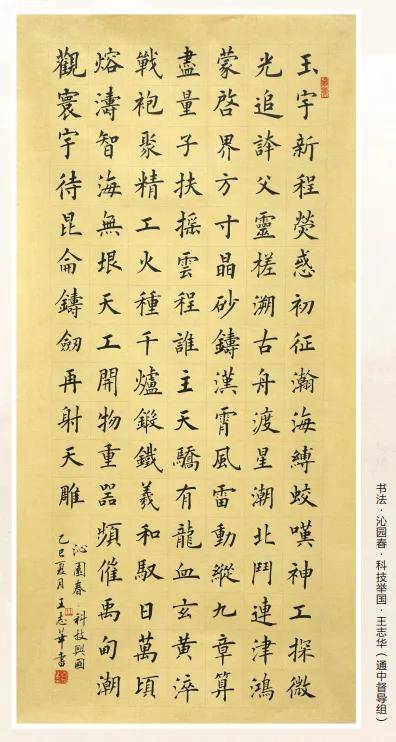 玉宇新程熒惑初征瀚海縛蛟嘆神工探微
光追誇父靈槎溯古舟渡星潮北鬥連津鴻
蒙啓界方寸晶砂鑄漢霄風雷動縱九章算
盡量子扶摇雲程誰主天驕有龍血玄黄淬
戰袍聚精工火種千爐鍛鐵義和馭日萬頃
熔濤智海無垠天工開物重器頻催禹甸潮
觀寰宇待昆侖鑄劒再射天雕
沁園春 科技興國
乙巳夏月王志華書
书法·沁园春·科技举国·王志华（通中督导组）